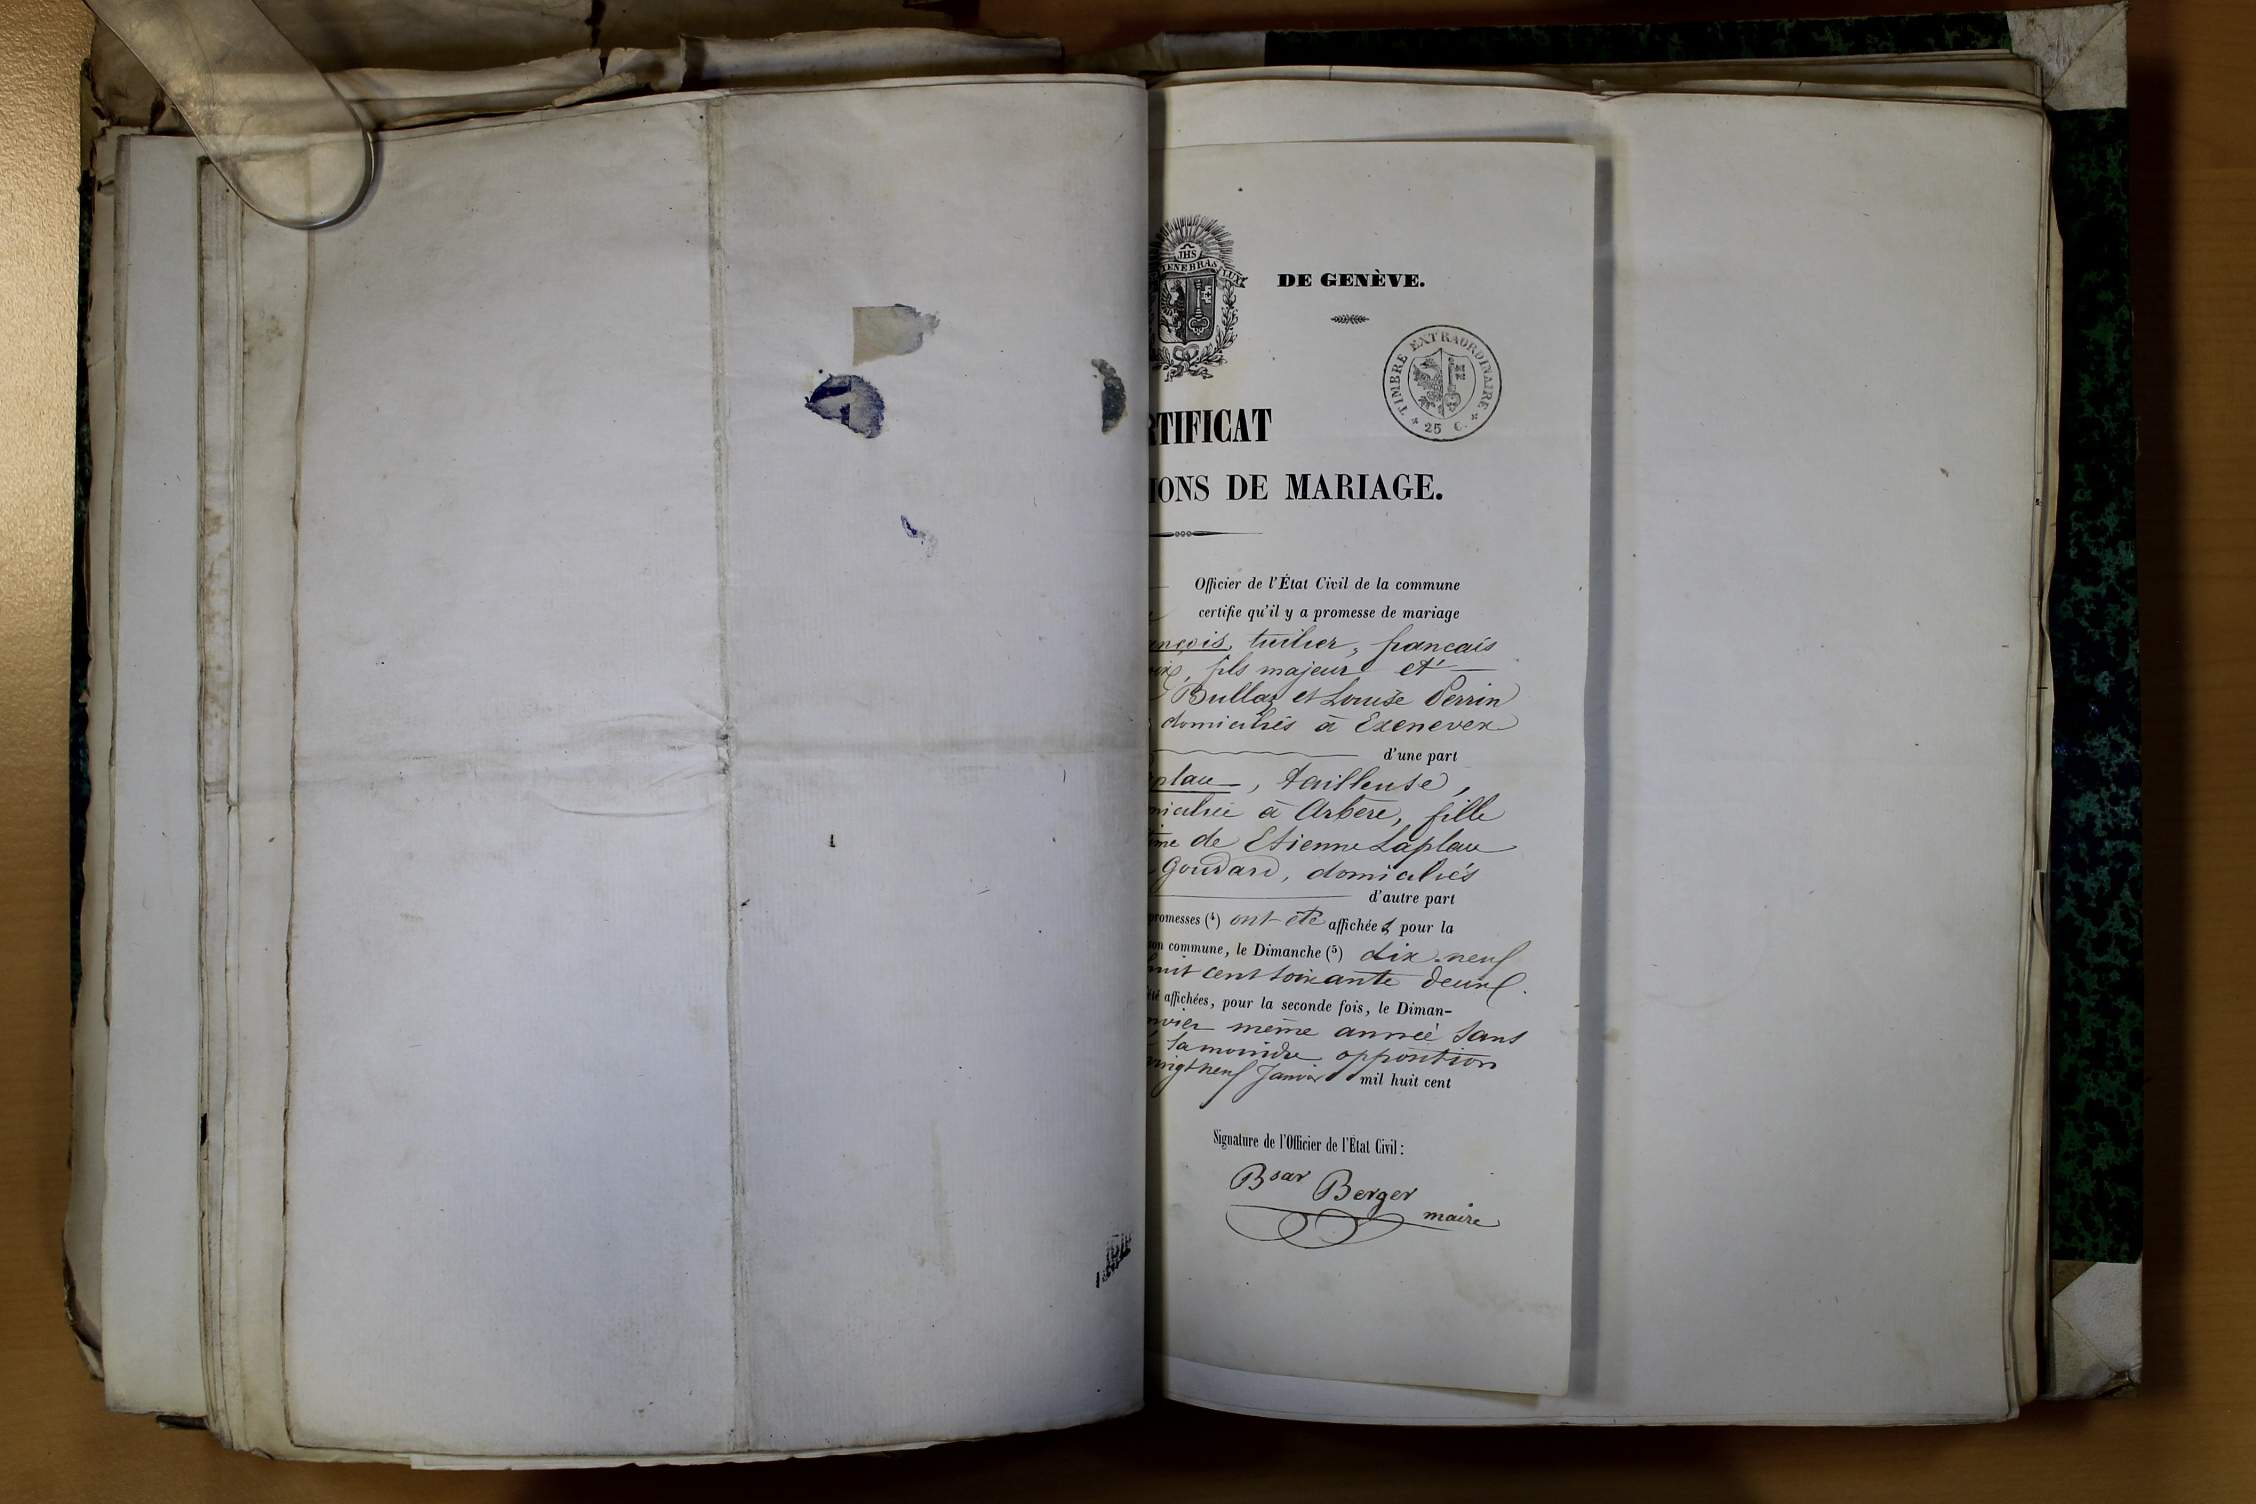 JHS
TENEBRAS LUX
DE GENÈVE.
TIMBRE EXTRAORDINAIRE
25 C.
RTIFICAT
IONS DE MARIAGE.
Officier de l'État Civil de la commune
certifie qu'il y a promesse de mariage
ançois, tuilier, francais
fils majeur et
Bullaz et Louise Perrin
domiciliés à Exenevex
d'une part
plau, tailleuse,
miciliée à Arbère, fille
time de Etienne Laplau
Goudard, domiciliés
d'autre part
promesses (4) ont été affichées pour la
son commune, le Dimanche (5) dix-neuf
huit cent soixante deux.
été affichées, pour la seconde fois, le Diman-
nvier même année sans
la moindre opposition
vingt neuf Janvier mil huit cent
Signature de l'Officier de l'État Civil :
Bsar Berger
maire